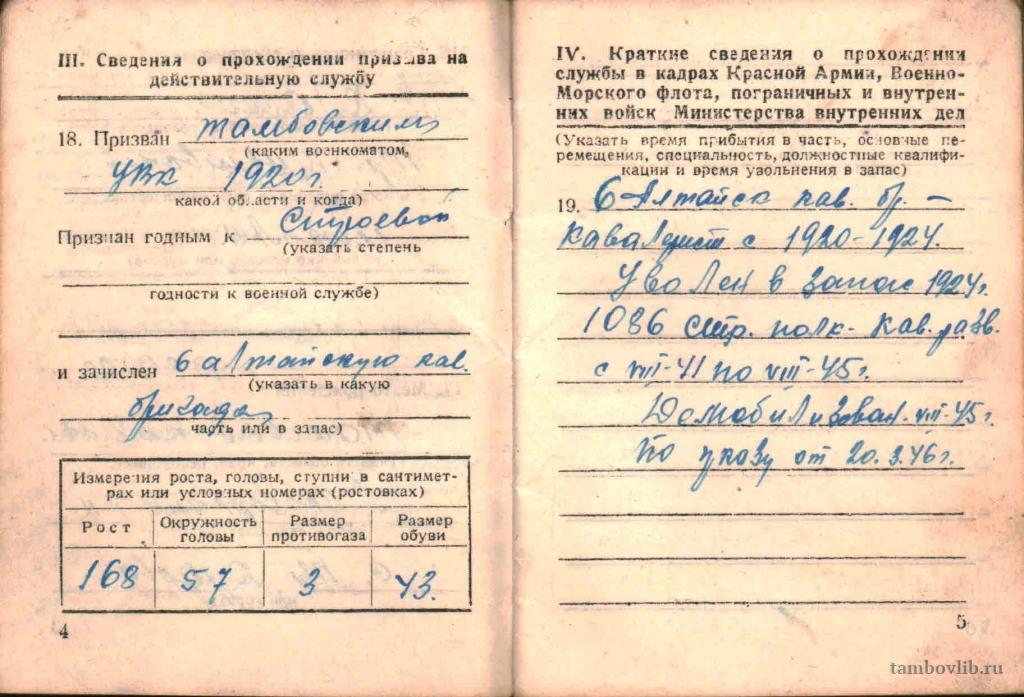 III. Сведения о прохождении призыва на
действительную службу
18. Призван тамбовским
(каким военкоматом,
УВК 1920г.
какой области и когда)
Признан годным к строевой
(указать степень
годности к военной службе)
и зачислен 6 алтайскую кав.
(указать в какую
бригаду
часть или в запас)
Измерения роста, головы, ступни в сантимет-
рах или условных номерах (ростовках)
Рост Окружность головы Размер противогаза Размер обуви
168 57 3 43.
4
IV. Краткие сведения о прохождении
службы в кадрах Красной Армии, Военно-
Морского флота, пограничных и внутрен-
них войск Министерства внутренних дел
(Указать время прибытия в часть, основные пе-
ремещения, специальность, должностные квалифи-
кации и время увольнения в запас)
19. 6-Алтайск кав. бр. –
кавалерист с 1920-1924.
Уволен в запас 1924г.
1086 стр. полк- кав. разв.
с VIII-41 по VIII-45г.
Демобилизован. VIII-45г.
по указу от 20.3.46г.
5
tambovlib.ru